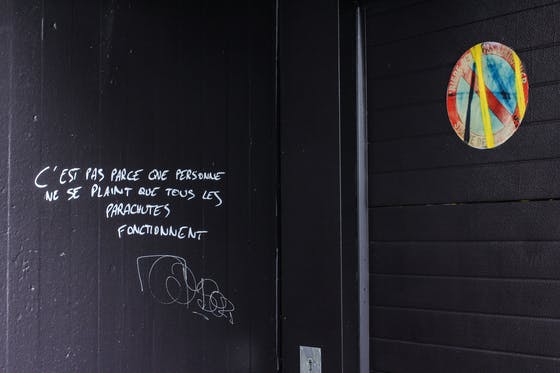 C'EST PAS PARCE QUE PERSONNE
NE SE PLAINT QUE TOUS LES
PARACHUTES
FONCTIONNENT